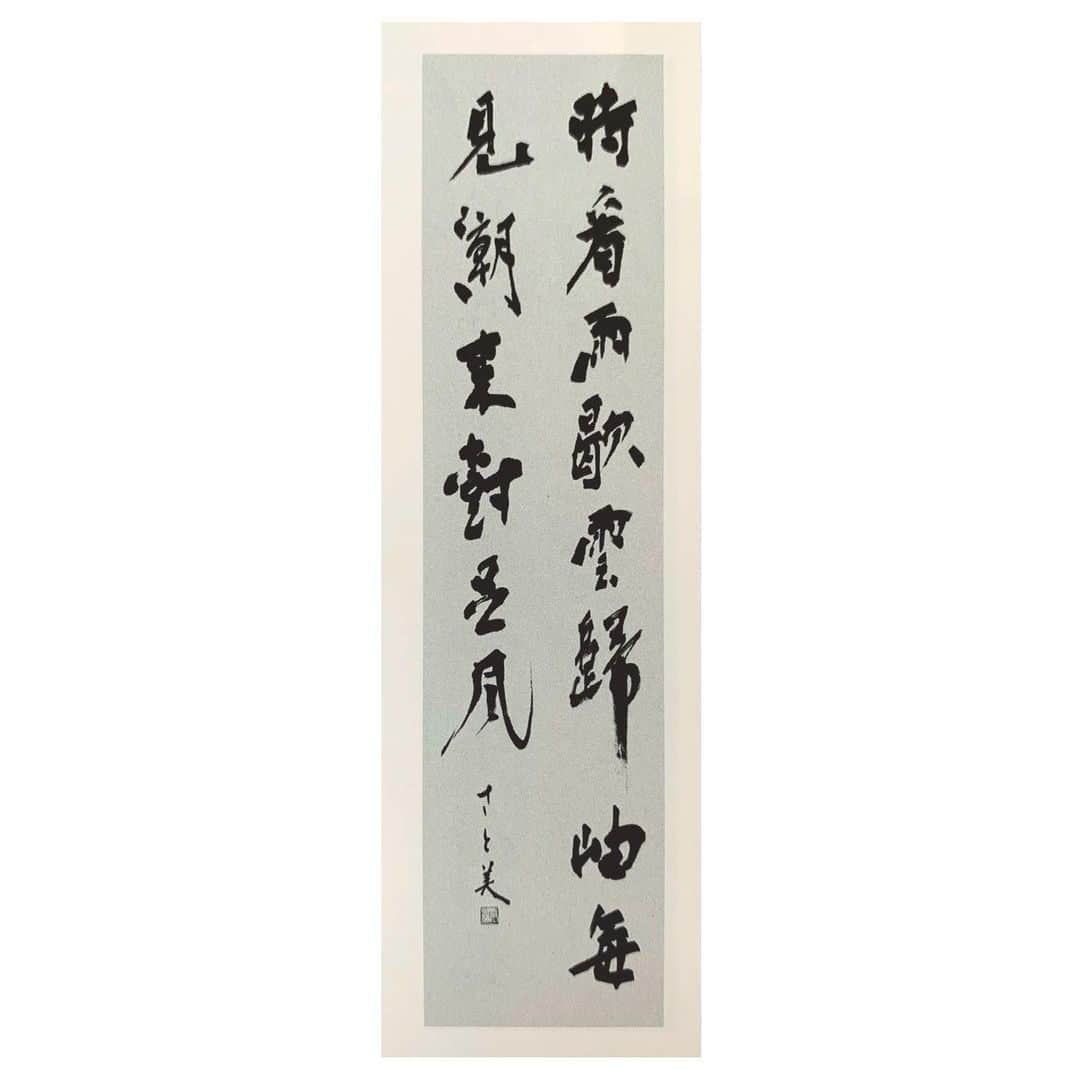 時看雨歇雲歸岫每
見潮來風
さと美